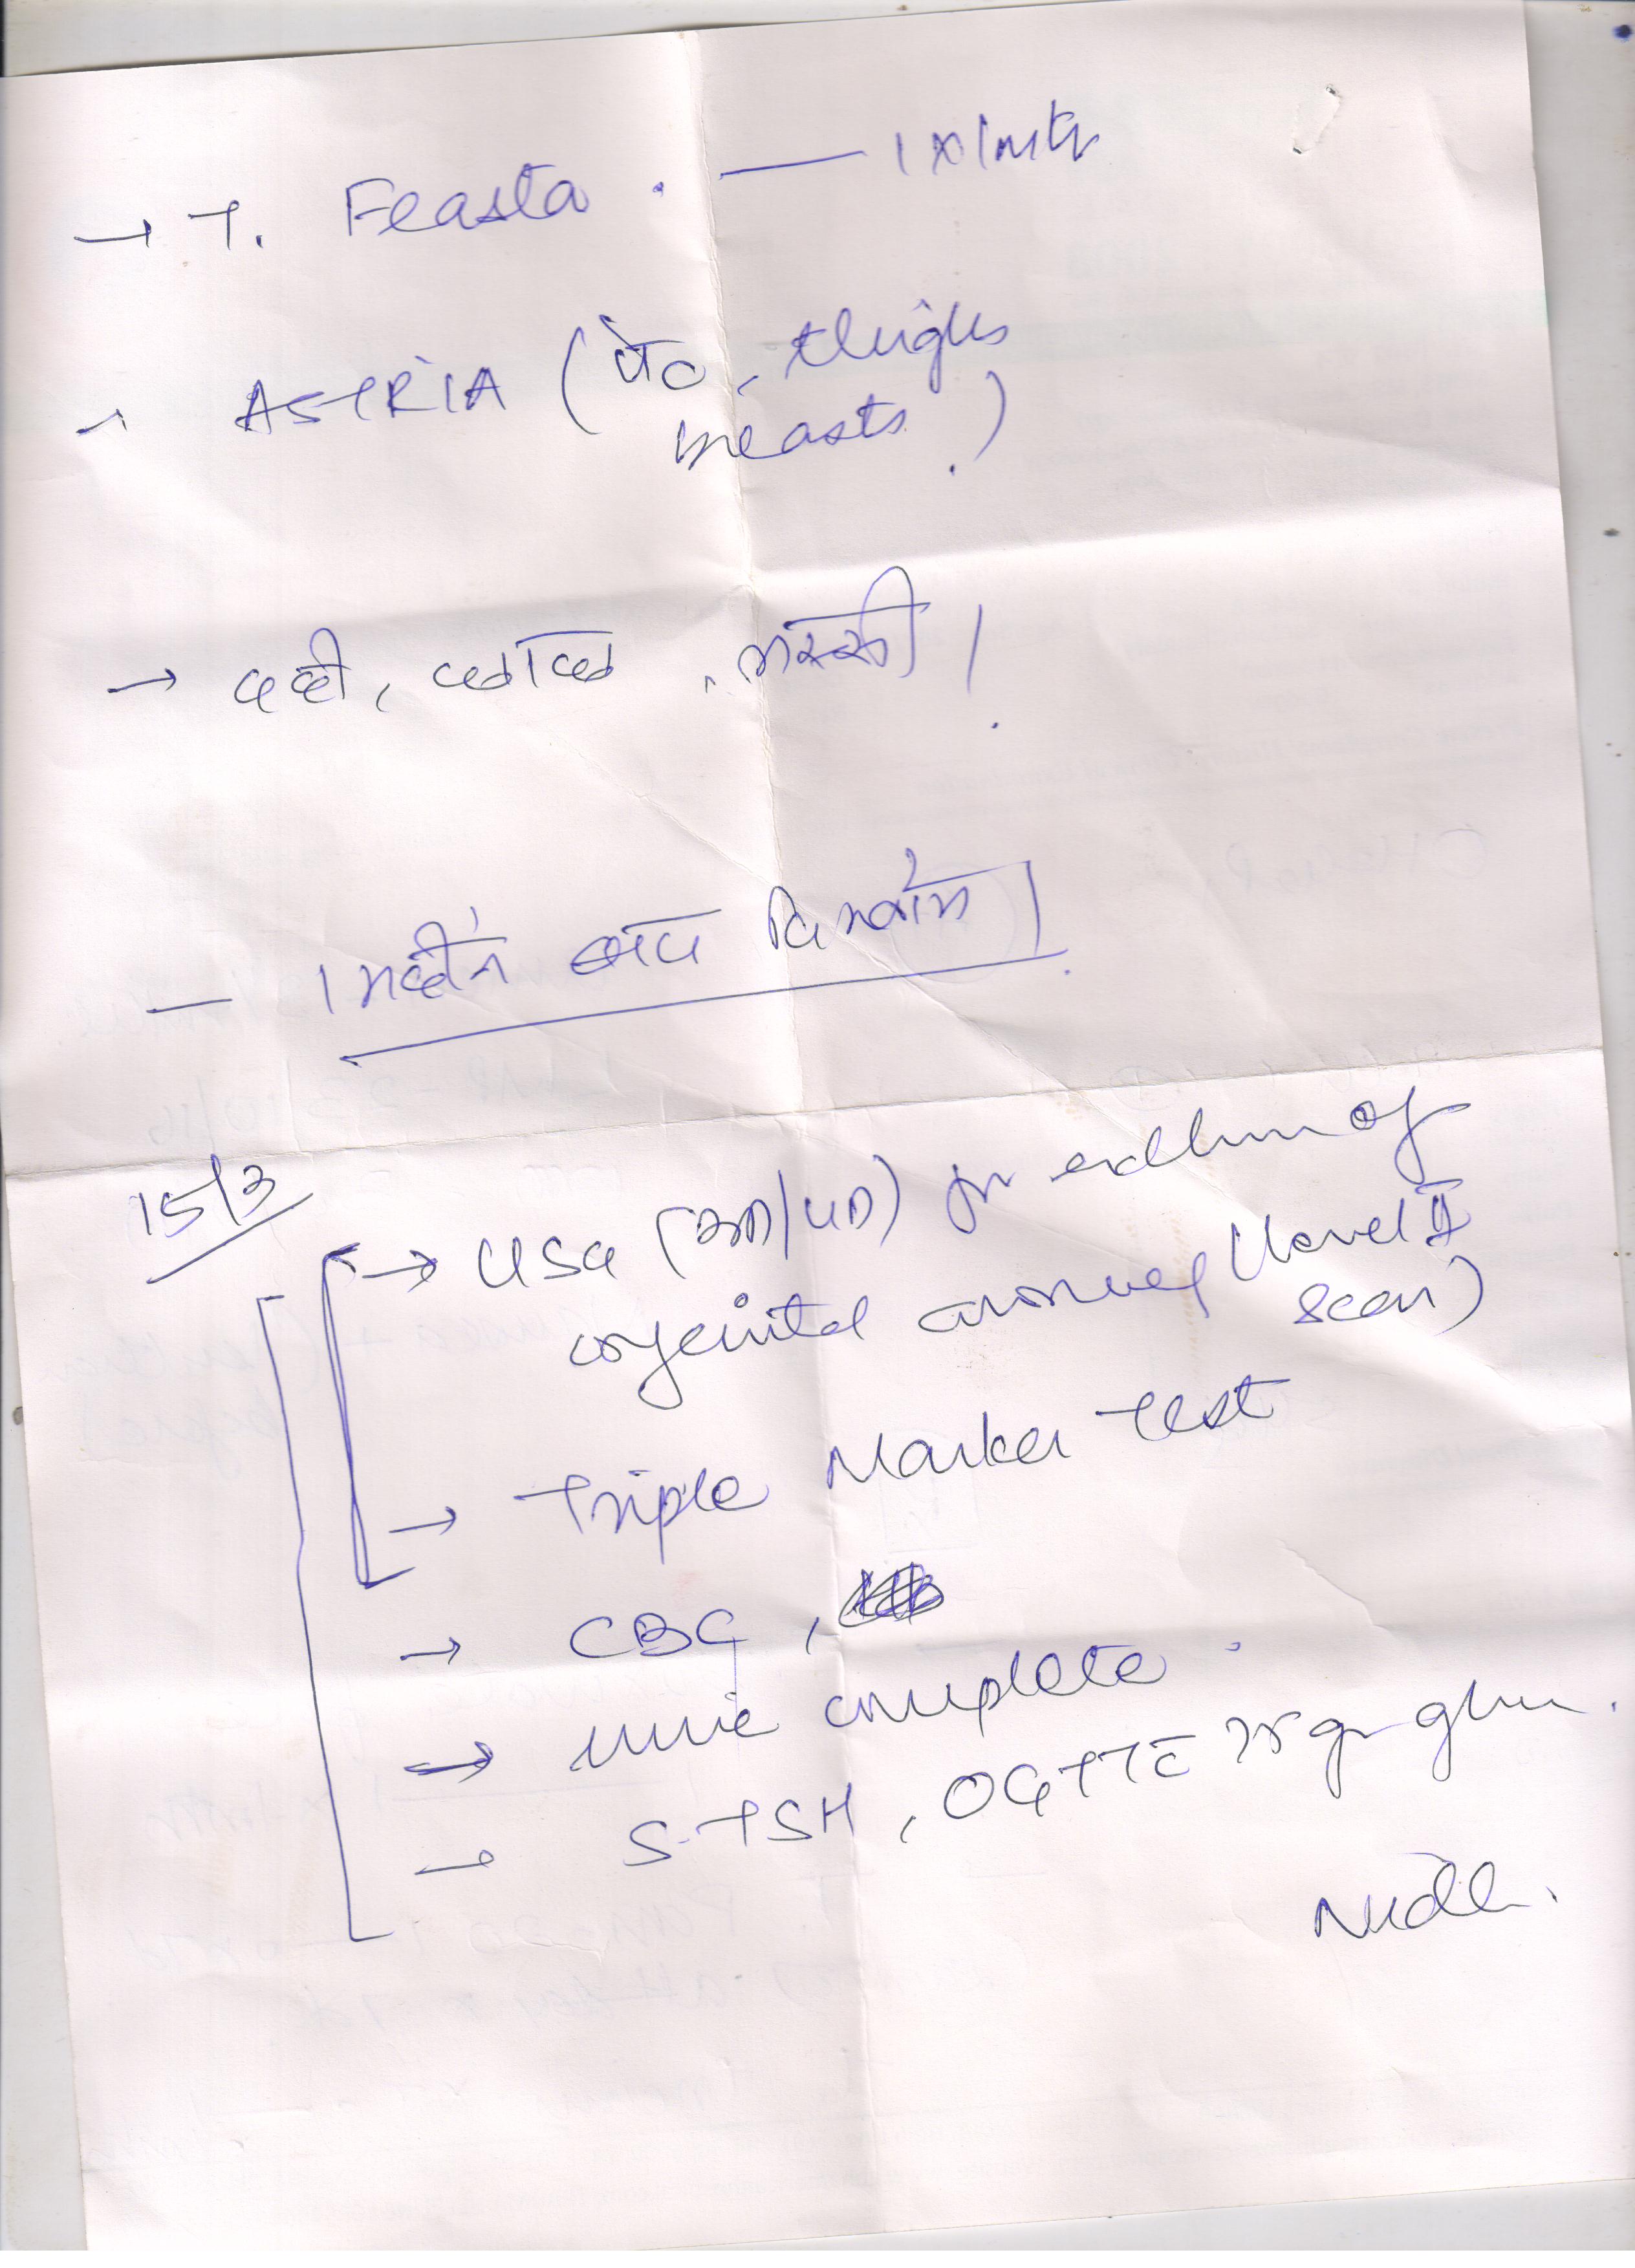 → T. Feasta. — 1 x 1 mth
→ ASTRIA (पेट, thighs
breasts.)
→ दही, , लस्सी।
— 1 महीने बाद दिखायें।
15/3
→ USG (3D/4D) for exclun of
congenital anomaly (Level II
Scan)
→ Triple Marker test
→ CBC,
→ urine complete.
→ S. TSH, OGTT c 75 gm glu.